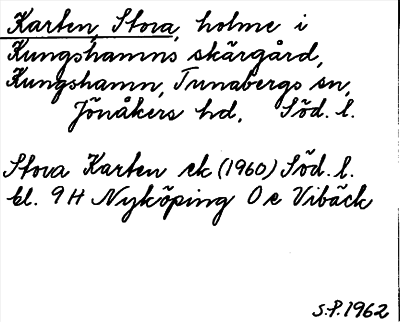 Karten, Stora, holme i
Kungshamns skärgård,
Kungshamn, Tunabergs sn,
Jönåkers hd, Söd. l.
Stora Karten ek (1960) Söd. l.
bl. 9 H Nyköping 0 e Vibäck
S.P. 1962